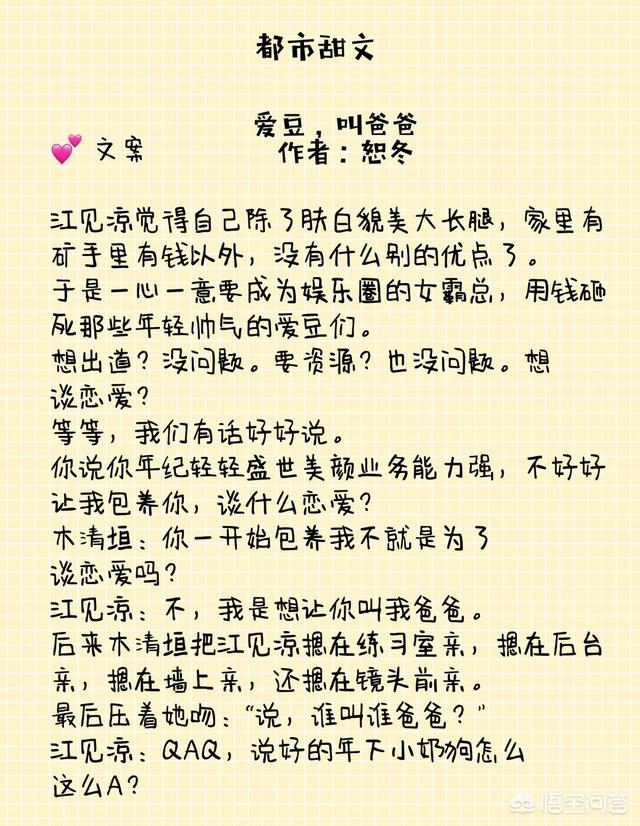 都市甜文
爱豆，叫爸爸
💕 文案 作者：恕冬
江见凉觉得自己除了肤白貌美大长腿，家里有
矿手里有钱以外，没有什么别的优点了。
于是一心一意要成为娱乐圈的女霸总，用钱砸
死那些年轻帅气的爱豆们。
想出道？没问题。要资源？也没问题。想
谈恋爱？
等等，我们有话好好说。
你说你年纪轻轻盛世美颜业务能力强，不好好
让我包养你，谈什么恋爱？
木清垣：你一开始包养我不就是为了
谈恋爱吗？
江见凉：不，我是想让你叫我爸爸。
后来木清垣把江见凉摁在练习室亲，摁在后台
亲，摁在墙上亲，还摁在镜头前亲。
最后压着她吻：“说，谁叫谁爸爸？”
江见凉：QAQ，说好的年下小奶狗怎么
这么A？
悟空问答